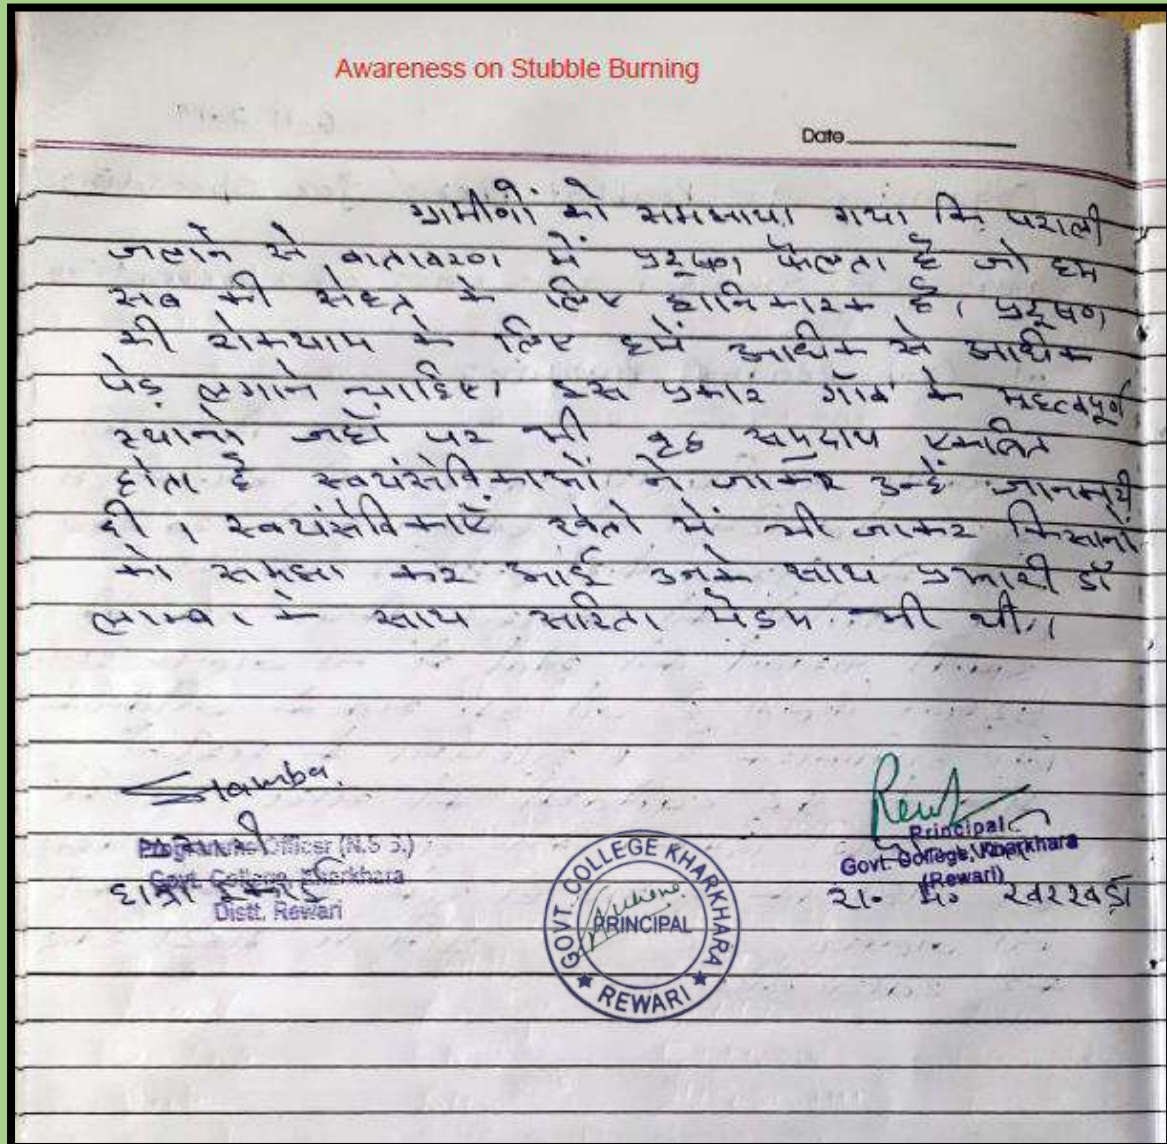 Awareness on Stubble Burning
Date
ग्रामीणों को समझाया गया कि पराली
जलाने से वातावरण में प्रदूषण फैलता है जो हम
सब की सेहत के लिए हानिकारक है। प्रदूषण
की रोकथाम के लिए हमें अधिक से अधिक
पेड़ लगाने चाहिए। इस प्रकार गाँव के महत्वपूर्ण
स्थानों जहाँ पर भी समुदाय एकत्रित
होता है स्वयंसेविकाओं ने जाकर उन्हें जानकारी
दी । स्वयंसेविकाएँ खेतों में भी जाकर किसानों
को समझा कर आई उनके साथ प्रभारी डॉ
लाम्बा के साथ सरिता मैडम भी थी।
Lamba
Programme Officer (N.S.S.)
Govt. College, Kharkhara
Distt. Rewari
GOVT. COLLEGE KHARKHARA
PRINCIPAL
REWARI
Principal
Govt. College, Kharkhara
(Rewari)
रा॰ म॰ खरखड़ा